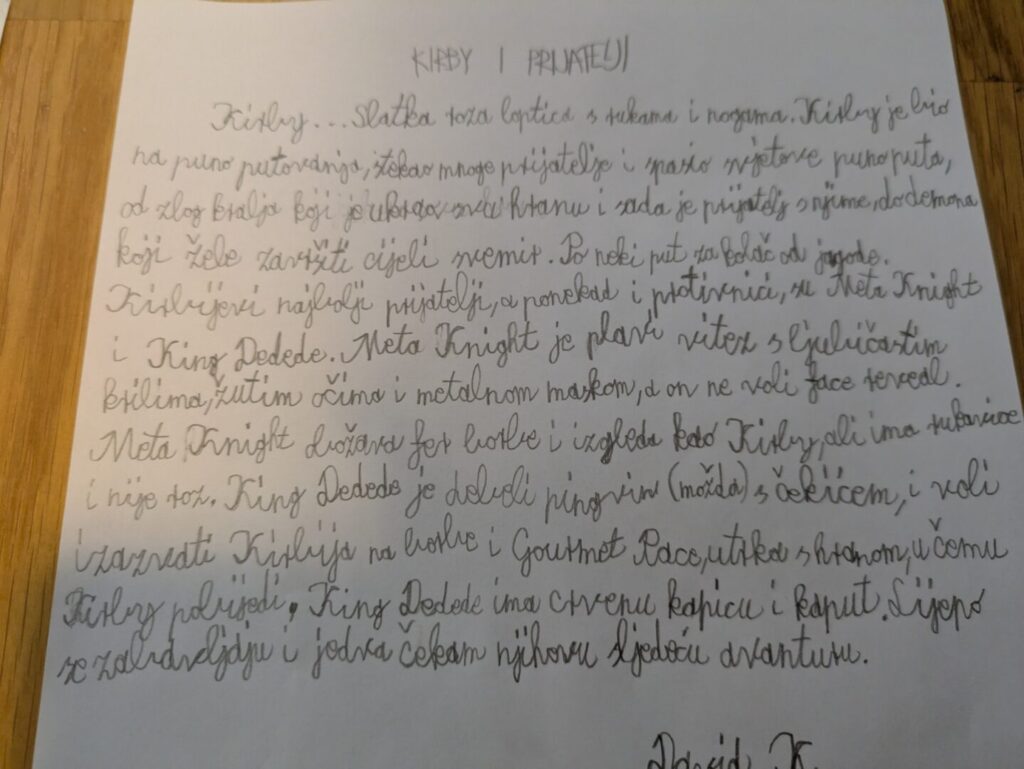 KIRBY I PRIJATELJI
Kirby... Slatka roza loptica s rukama i nogama. Kirby je bio
na puno putovanja, stekao mnoge prijatelje i spasio svjetove puno puta,
od zlog kralja koji je ukrao svu hranu i sada je prijatelj s njime, do demona
koji žele završiti cijeli svemir. Po neki put za kolač od jagode.
Kirbijevi najbolji prijatelji, a ponekad i protivnici, su Meta Knight
i King Dedede. Meta Knight je plavi vitez s ljubičastim
krilima, žutim očima i metalnom maskom, a on ne voli face reveal.
Meta Knight održava fer borbe i izgleda kao Kirby, ali ima rukavice
i nije roz. King Dedede je debeli pingvin (možda) s čekićem, i voli
izazvati Kirbija na borbe i Gourmet Race, utrka s hranom, u čemu
Kirby pobijedi. King Dedede ima crvenu kapicu i kaput. Lijepo
se zabavljaju i jedva čekam njihovu sljedeću avanturu.
David K.